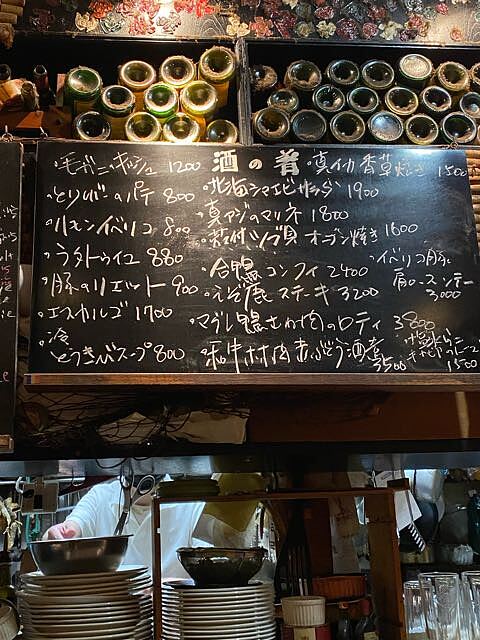 酒の肴
・毛ガニのキッシュ 1200
・とりレバーのパテ 800
・リモンイベリコ 800
・ラタトゥイユ 880
・豚のリエット 900
・エスカルゴ 1700
・冷とうきびスープ 800
・真イカ香草焼き 1500
・北海シマエビサラダ 1900
・真アジのマリネ 1800
・殻付ツブ貝オーブン焼き 1600
・合鴨コンフィ 2400
・えぞ鹿ステーキ 3200
・マグレ鴨むね肉のロティ 3800
・和牛ホホ肉赤ぶどう酒煮 3500
・イベリコ豚肩ロースソテー 3000
1500